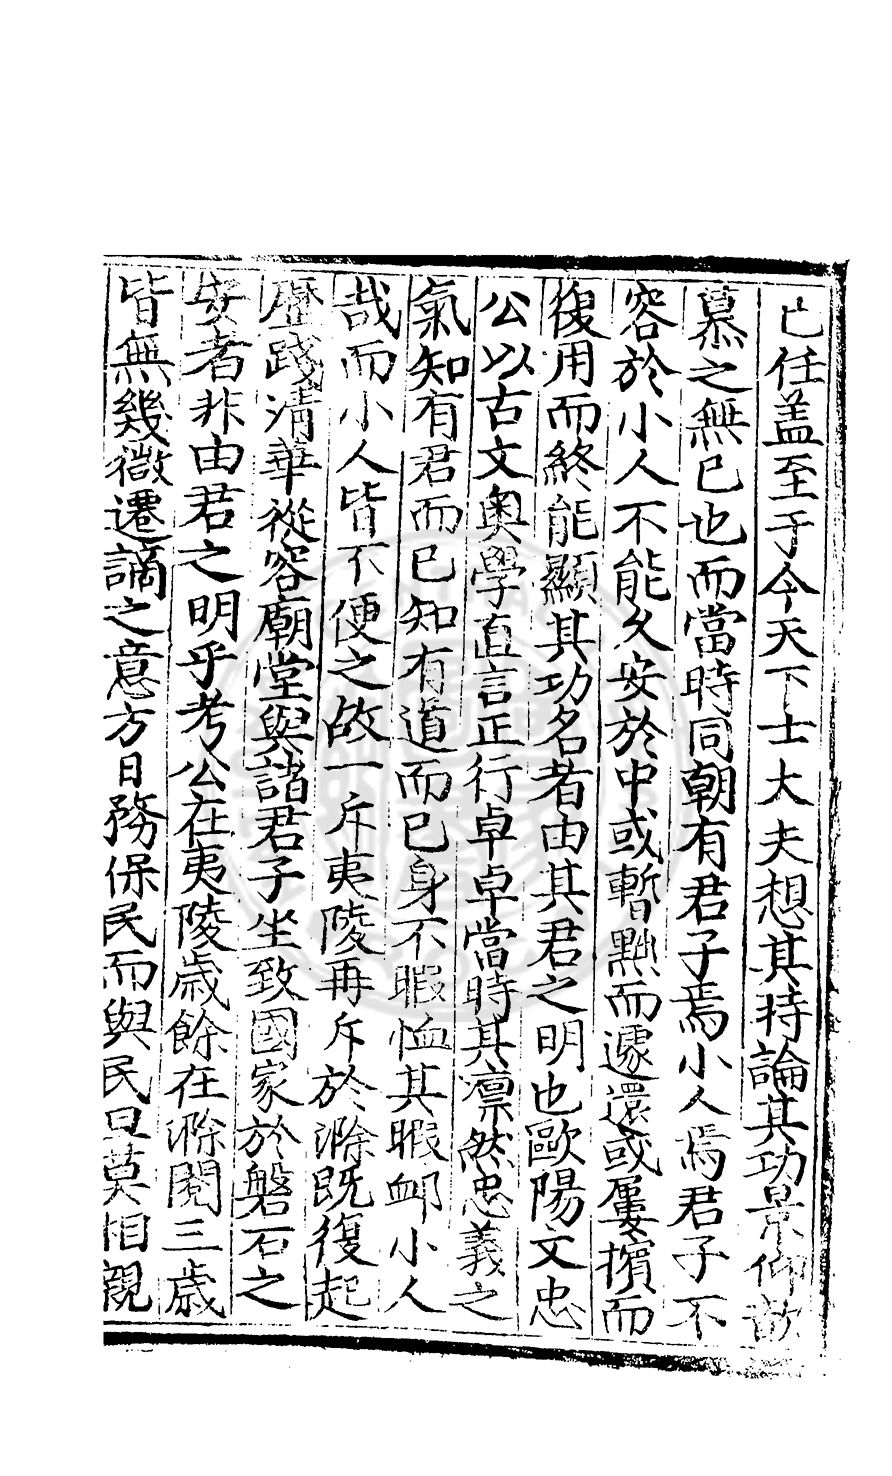 已任盖至于今天下士大夫想其持論其功景仰歆
慕之無已也而當時同朝有君子焉小人焉君子不
容於小人不能久安於中或暫黜而遽還或屢擯而
復用而終能顯其功名者由其君之明也歐陽文忠
公以古文奧學直言正行卓卓當時其凛然忠義之
氣知有君而已知有道而已身不暇恤其暇衈小人
哉而小人皆不便之故一斥夷陵再斥於滁既復起
歷踐清華從容廟堂與諸君子坐致國家於磐石之
安者非由君之明乎考公在夷陵歳餘在滁閱三歳
皆無幾微遷謫之意方日務保民而與民旦莫相親